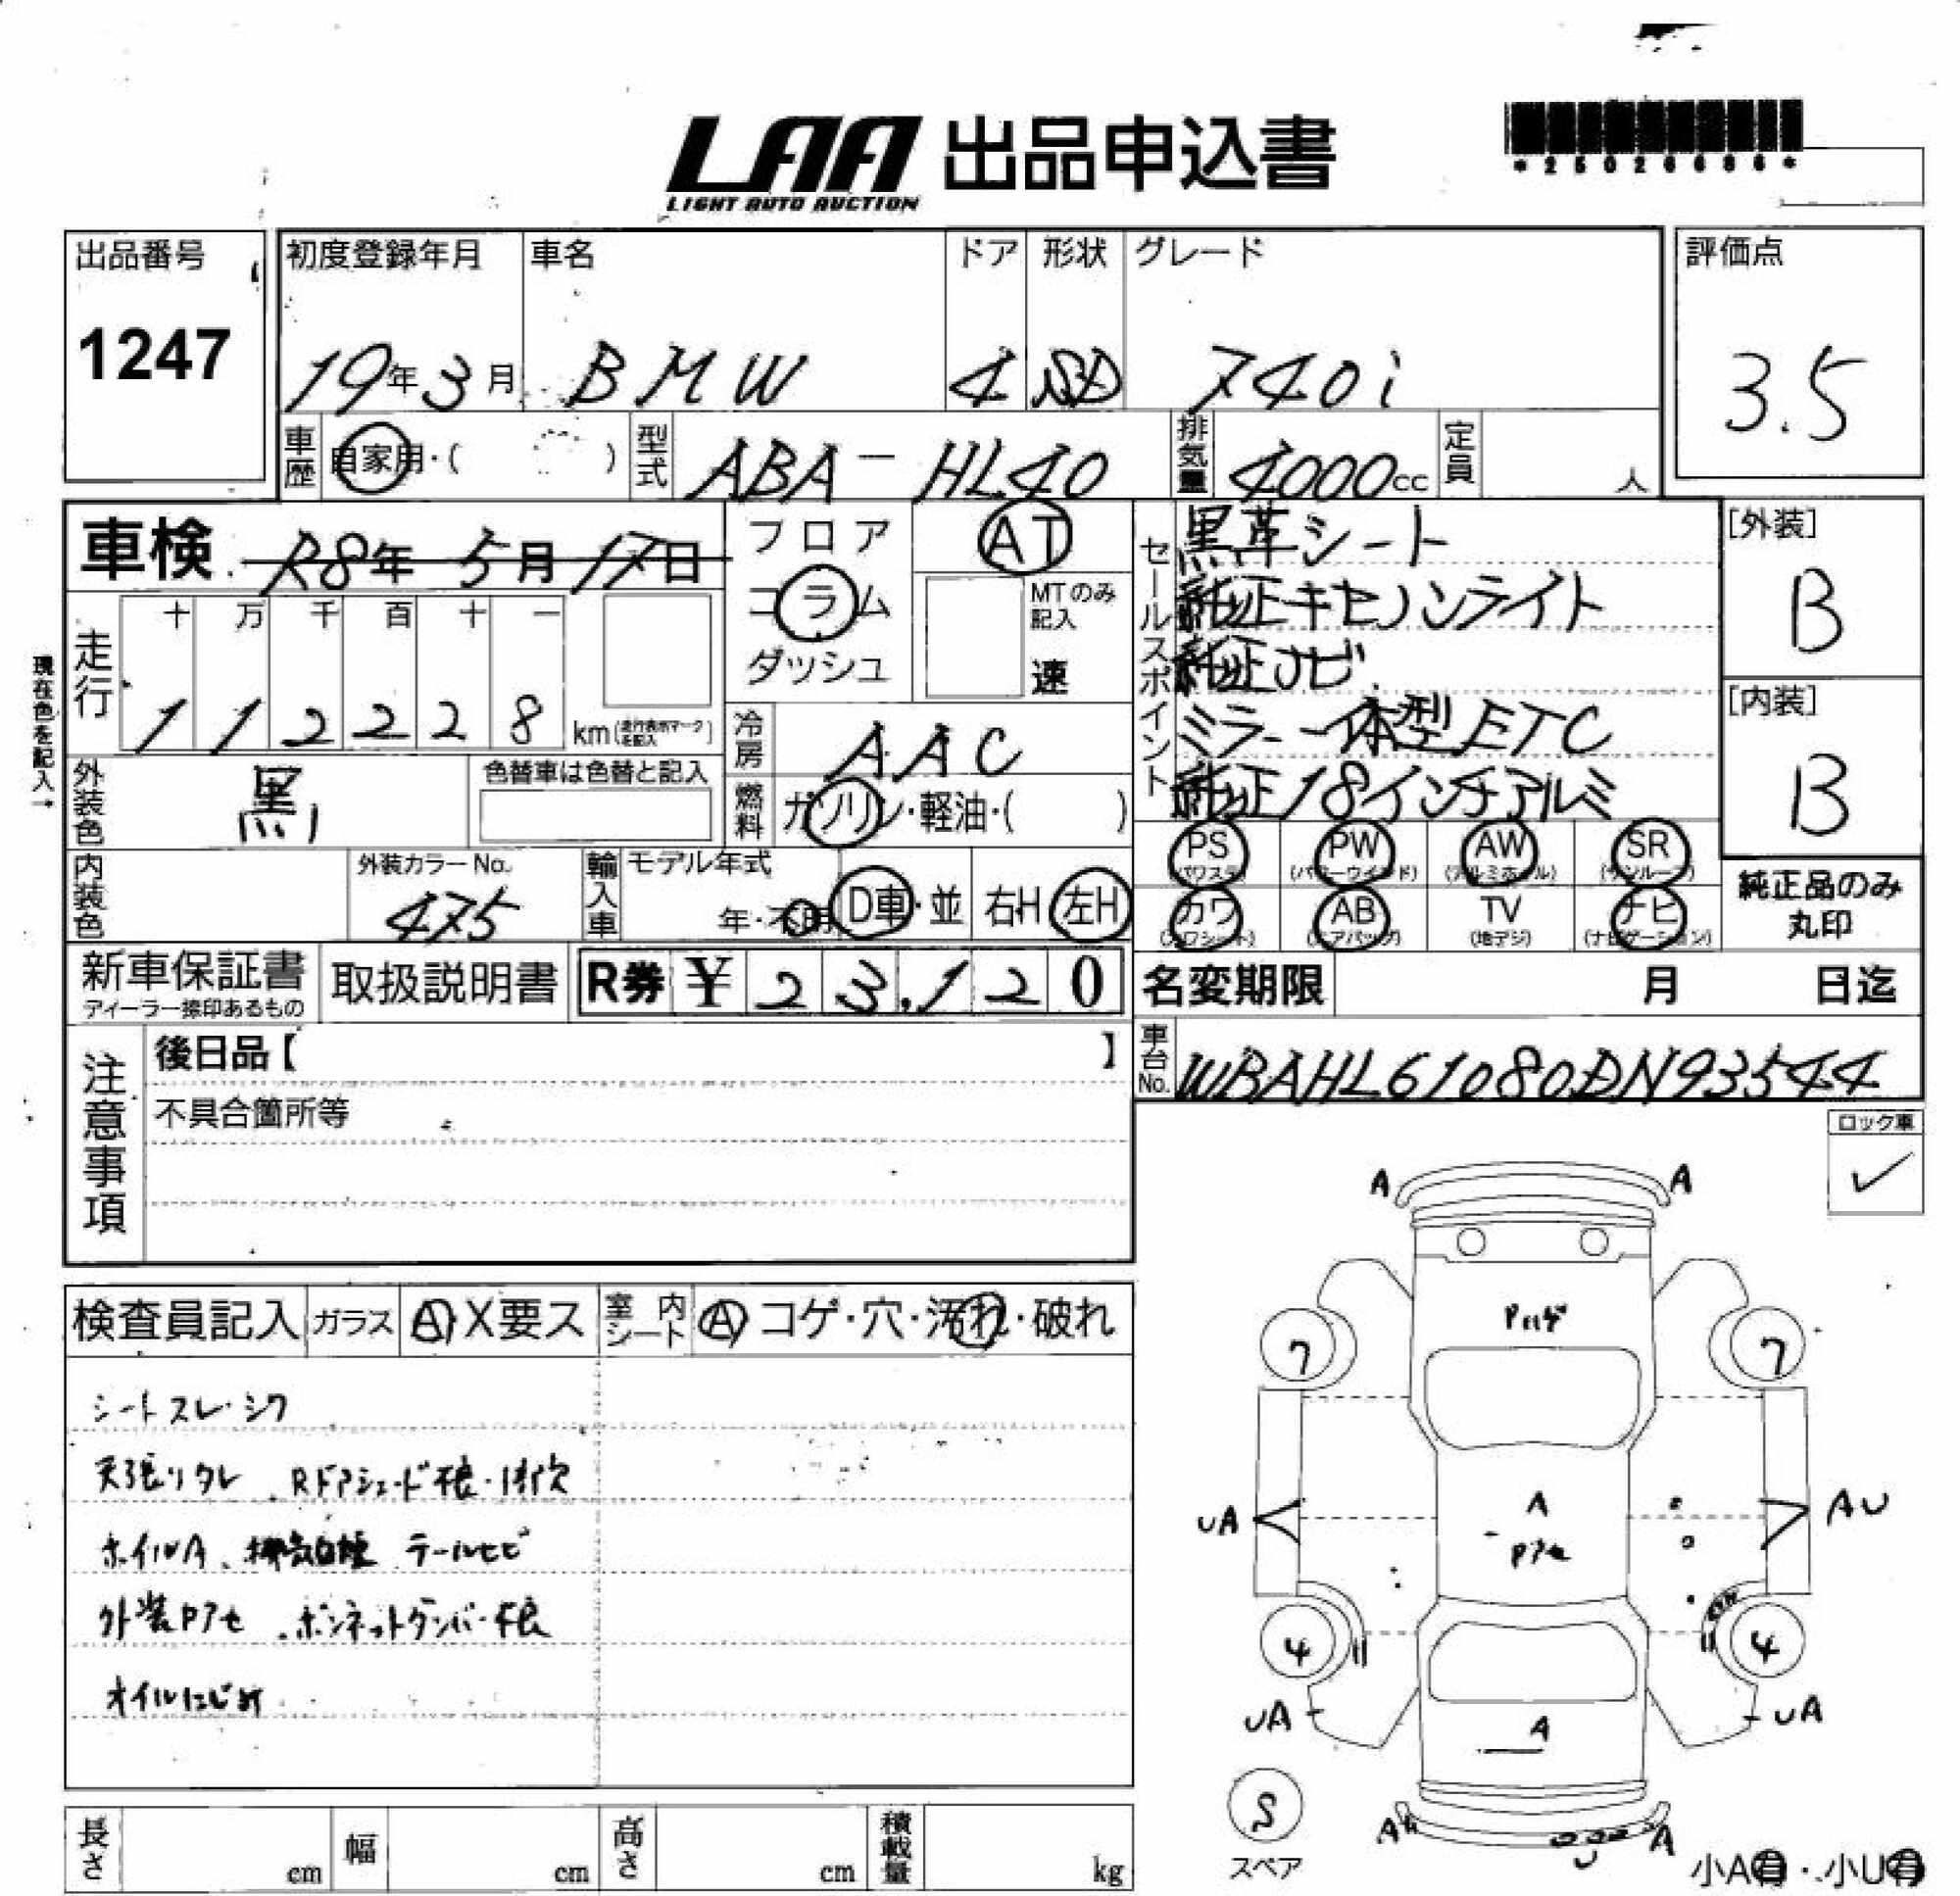 LAA 出品申込書
LIGHT AUTO AUCTION
*25026686*
出品番号
1247
初度登録年月 車名 ドア 形状 グレード
19年3月 BMW 4 SD 740i
評価点
3.5
車歴 自家用・( ) 型式 ABA-HL40 排気量 4000cc 定員 人
車検 R8年 5月 17日
フロア
コラム
ダッシュ
AT
MTのみ記入
速
セールスポイント
黒革シート
純正キセノンライト
純正ナビ
ミラー一体型ETC
純正18インチアルミ
[外装]
B
[内装]
B
現在色を記入→
走行 十 万 千 百 十 一
112228 km(走行表示マークを記入)
冷房 AAC
外装色 黒 色替車は色替と記入
燃料 ガソリン・軽油・( )
PS PW AW SR
(パワステ) (パワーウインド) (アルミホイル) (サンルーフ)
カワ AB TV ナビ
(カワシート) (エアバッグ) (地デジ) (ナビゲーション)
純正品のみ
丸印
内装色 外装カラーNo. 475 輸入車 モデル年式 年・不明 D車・並 右H 左H
新車保証書
ディーラー捺印あるもの
取扱説明書
R券 ¥23,120
名変期限 月 日迄
車台No. WBAHL61080DN93544
注意事項
後日品【 】
不具合箇所等
ロック車
✓
検査員記入 ガラス A X要ス 室内シート A コゲ・穴・汚れ・破れ
シートスレ・シワ
天張リタレ Rドアシェード不良・掛欠
ホイルA テールヒビ
外装Pアセ ボンネットダンパー不良
オイルにじみ
A A
Pハゲ
7 7
UA A AU
Pアセ
4 4
UA A UA
S
スペア
A A
U
小A有・小U有
長さ cm 幅 cm 高さ cm 積載量 kg